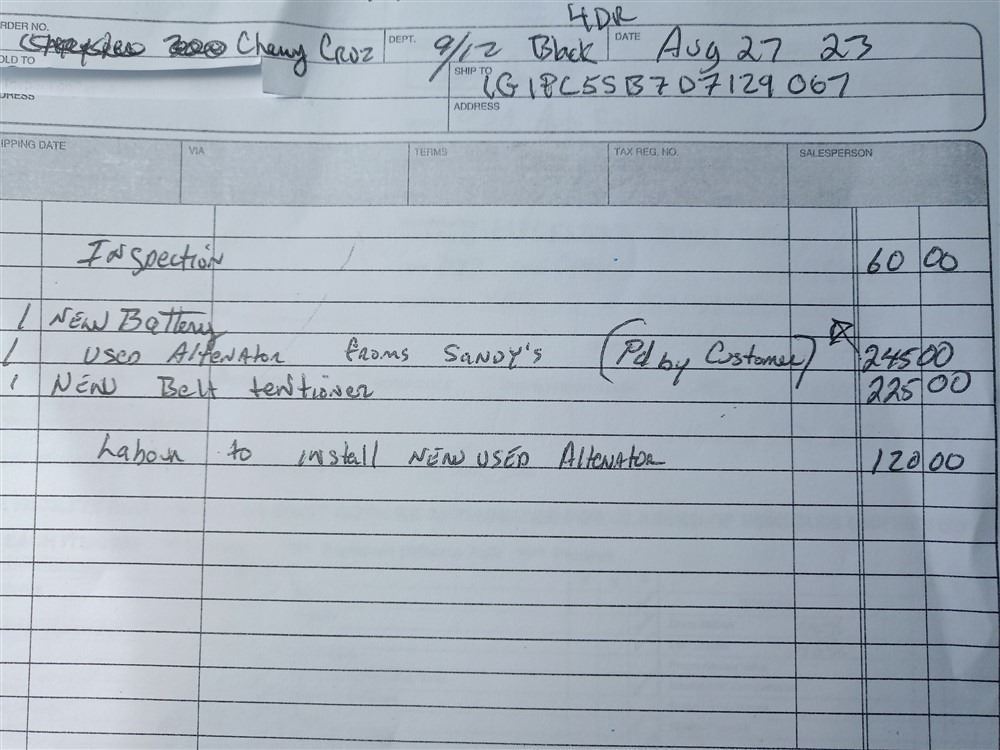 4DR
RDER NO.
Chevy Cruz DEPT. 9/12 Black DATE Aug 27 23
OLD TO
SHIP TO 1G1PC5SB7D7129067
DRESS
ADDRESS
IPPING DATE VIA TERMS TAX REG. NO. SALESPERSON
Inspection 60 00
1 New Battery
1 Used Altenator from Sandy's (Pd by Customer) 245 00
1 New Belt tentioner 225 00
Labour to install New USED Altenator 120 00